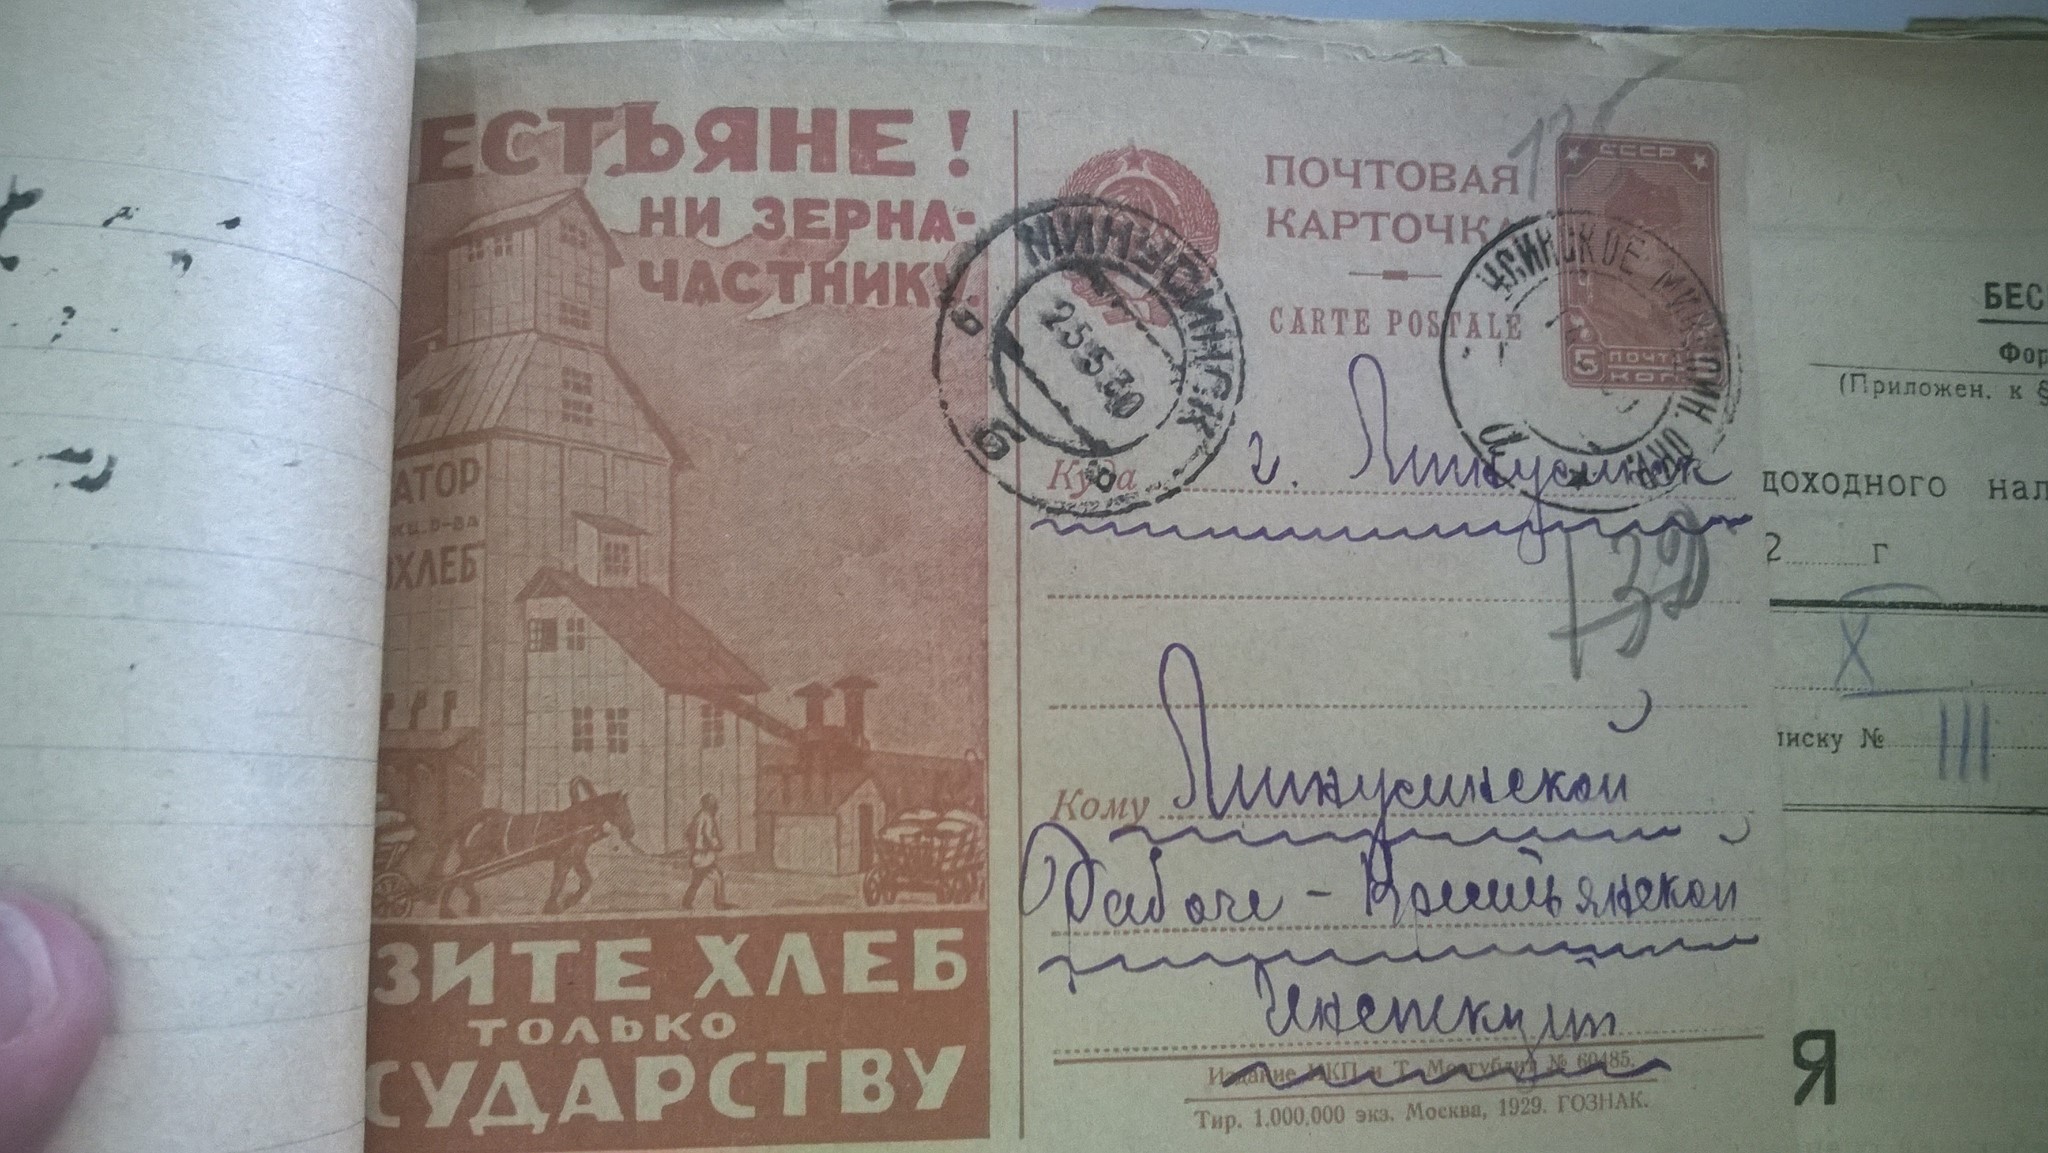 ЕСТЬЯНЕ!
НИ ЗЕРНА-
ЧАСТНИКУ.
АТОР
ХЛЕБ
ЗИТЕ ХЛЕБ
ТОЛЬКО
СУДАРСТВУ
ПОЧТОВАЯ
КАРТОЧКА
CARTE POSTALE
СССР
5 ПОЧТА
КОП
МИНУСИНСК
25.5.30
УСИНСКОЕ МИНУСИН. ОКР.
Куда г. Минусинск
132
Кому Минусинской
Рабоче-Крестьянской
Инспекции
Издание НКП и Т. Мосгублит № 60485.
Тир. 1.000.000 экз. Москва, 1929. ГОЗНАК.
БЕС
Фор
(Приложен. к §
доходного нал
2 г
X
иску № III
Я